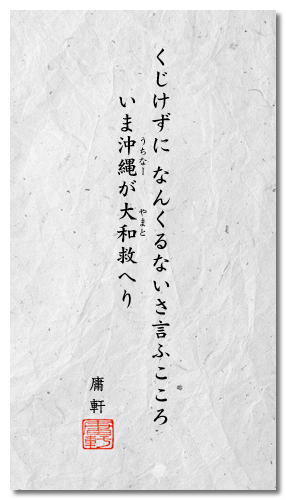 くじけずに なんくるないさ言ふこころ
いま沖縄が大和救へり
うちなー
やまと
庸軒
庸軒